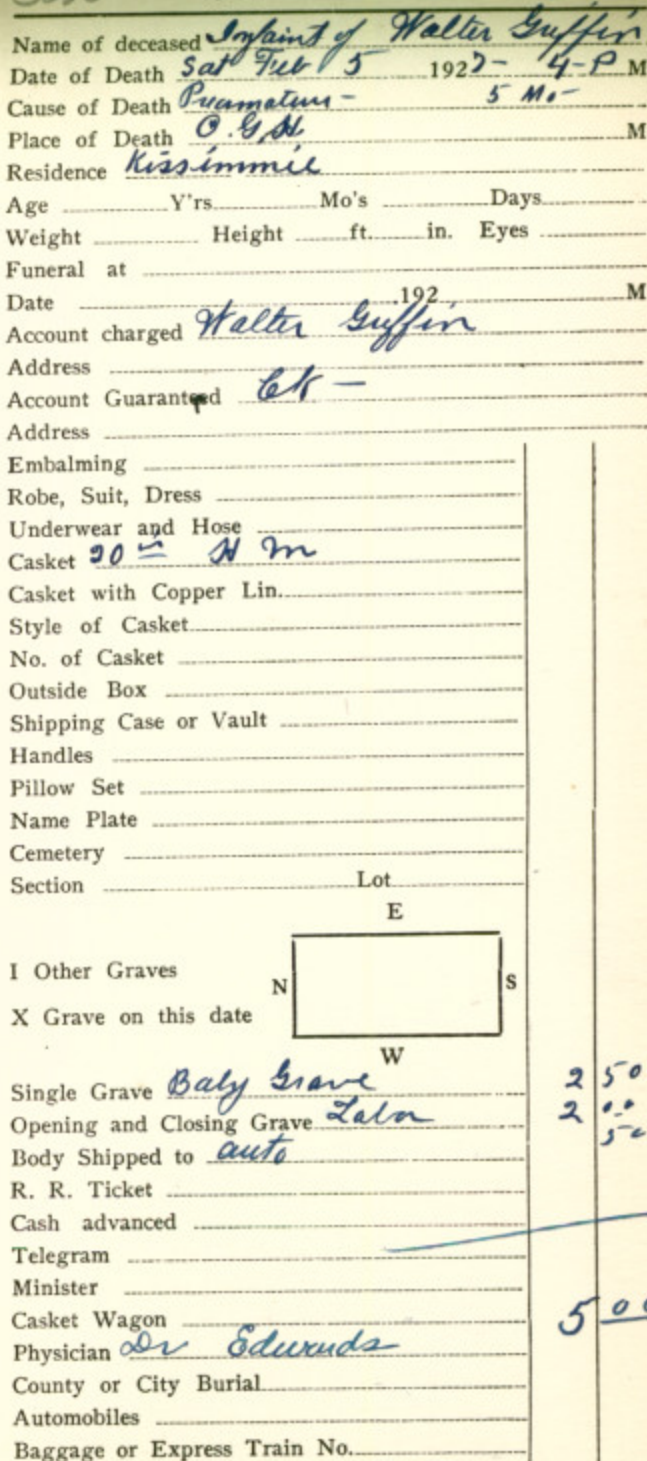 Name of deceased Infaint of Walter Guffin
Date of Death Sat Feb 5 1927- 4-P M
Cause of Death Preamature- 5 Mo-
Place of Death O.G.H. M
Residence Kissimmie
Age Y'rs Mo's Days
Weight Height ft. in. Eyes
Funeral at
Date , 192 M
Account charged Walter Guffin
Address
Account Guaranteed Ck -
Address
Embalming
Robe, Suit, Dress
Underwear and Hose
Casket 20 in H m
Casket with Copper Lin.
Style of Casket
No. of Casket
Outside Box
Shipping Case or Vault
Handles
Pillow Set
Name Plate
Cemetery
Section Lot
E
I Other Graves
N S
X Grave on this date
W
Single Grave Baby Grave 2 50
Opening and Closing Grave Labor 2 00
Body Shipped to auto 50
R. R. Ticket
Cash advanced
Telegram
Minister
Casket Wagon 5 00
Physician Dr Edwards
County or City Burial
Automobiles
Baggage or Express Train No.